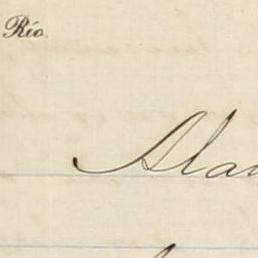 Río.
Ala